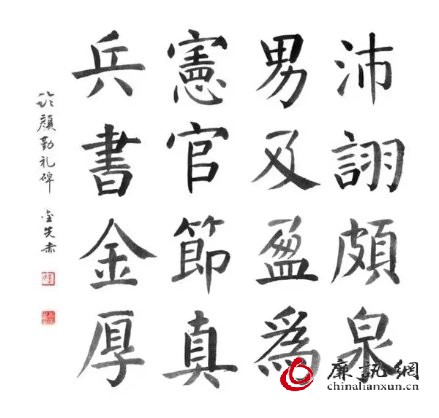 沛詡頗泉
男及盈爲
憲官節真
兵書金厚
临顔勤礼碑
廉訊網
chinalianxun.cn